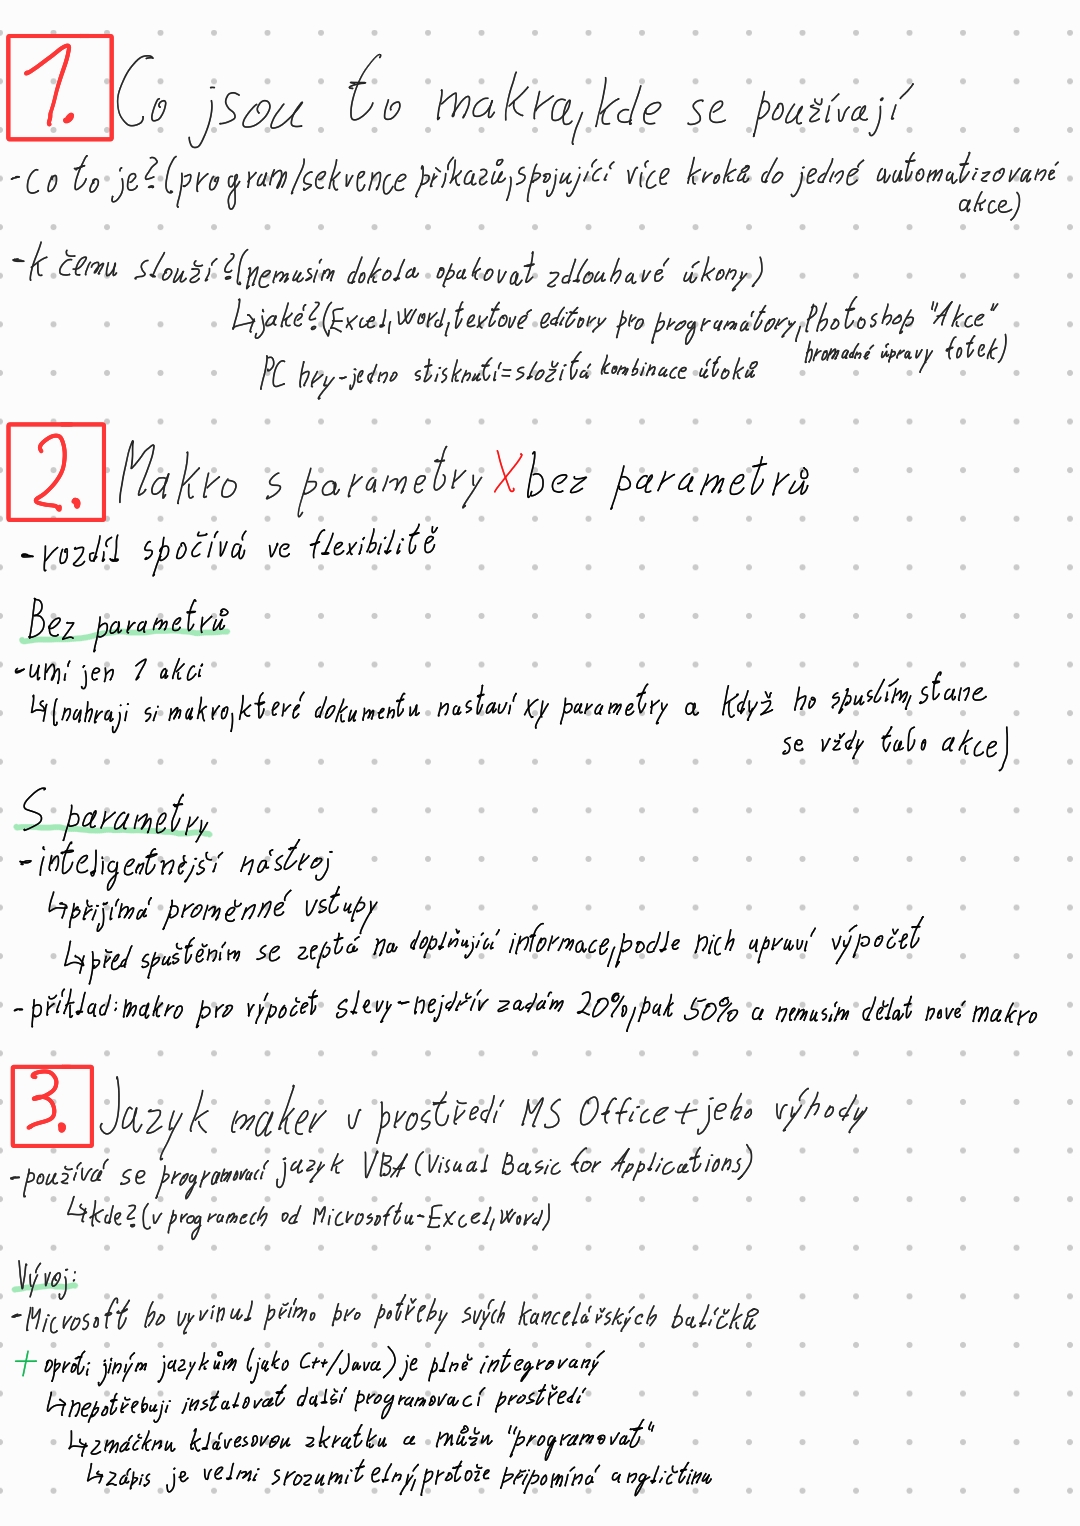 1. Co jsou to makra, kde se používají
-co to je? (program/sekvence příkazů, spojující více kroků do jedné automatizované
akce)
-k čemu slouží? (nemusím dokola opakovat zdlouhavé úkony)
↳jaké? (Excel, Word, textové editory pro programátory, Photoshop "Akce"
hromadné úpravy fotek)
PC hry-jedno stisknutí=složitá kombinace útoků
2. Makro s parametry X bez parametrů
-rozdíl spočívá ve flexibilitě
Bez parametrů
-umí jen 1 akci
↳(nahraji si makro, které dokumentu nastaví xy parametry a když ho spustím, stane
se vždy tato akce)
S parametry
-inteligentnější nástroj
↳přijímá proměnné vstupy
↳před spuštěním se zeptá na doplňující informace, podle nich upraví výpočet
-příklad: makro pro výpočet slevy-nejdřív zadám 20%, pak 50% a nemusím dělat nové makro
3. Jazyk maker v prostředí MS Office+jeho výhody
-používá se programovací jazyk VBA (Visual Basic for Applications)
↳kde? (v programech od Microsoftu-Excel, Word)
Vývoj:
-Microsoft ho vyvinul přímo pro potřeby svých kancelářských balíčků
+ oproti jiným jazykům (jako C++/Java) je plně integrovaný
↳nepotřebuji instalovat další programovací prostředí
↳zmáčknu klávesovou zkratku a můžu "programovat"
↳zápis je velmi srozumitelný, protože připomíná angličtinu